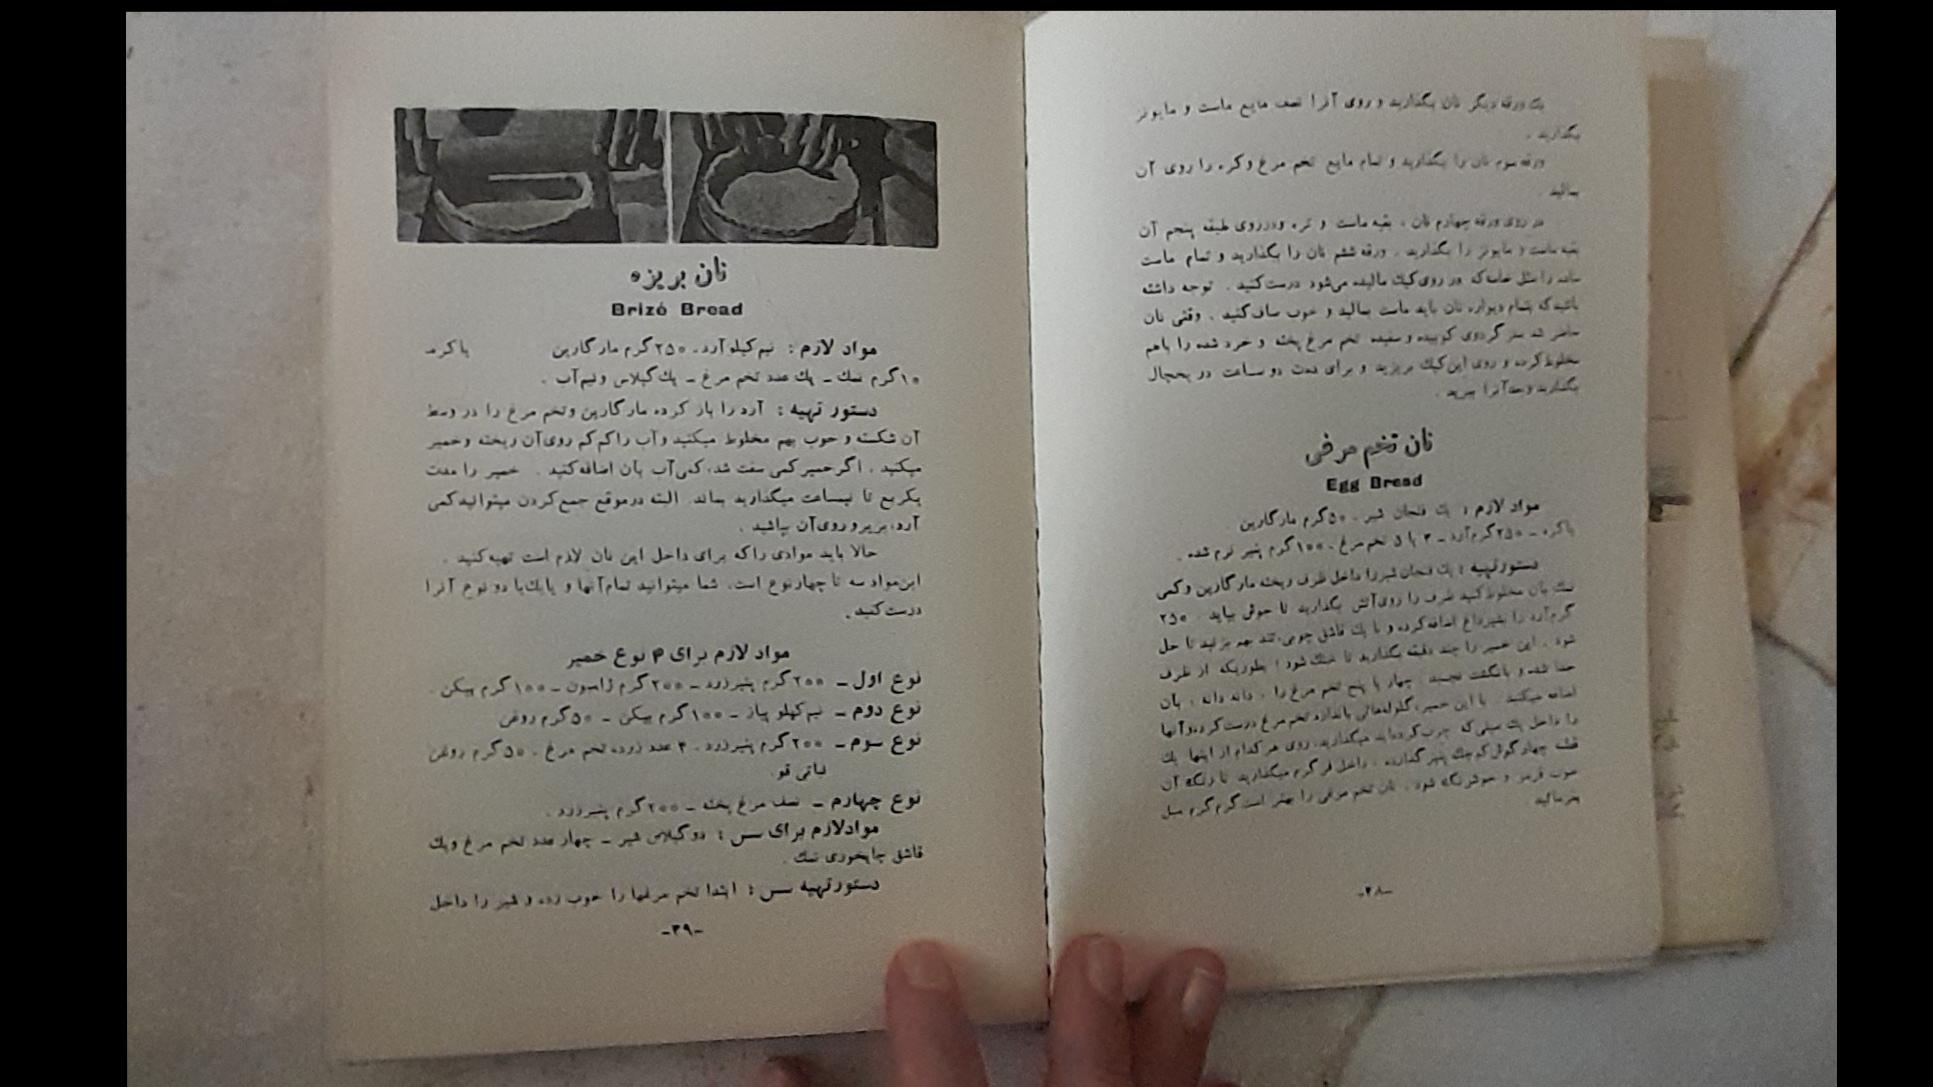 یك ورقه دیگر نان بگذارید و روی آنرا نصف مایع ماست و مایونز
بگذارید .
ورقه سوم نان را بگذارید و تمام مایع تخم مرغ وکره را روی آن
بمالید .
در روی ورقه چهارم نان ، بقیه ماست و تره ودرروی طبقه پنجم آن
بقیه ماست و مایونز را بگذارید . ورقه ششم نان را بگذارید و تمام ماست
مانده را مثل خامه‌که بر روی‌کیك مالیده می‌شود درست‌کنید . توجه داشته
باشیدکه بتمام دیواره نان باید ماست بمالید و خوب صاف‌کنید . وقتی نان
حاضر شد مغز گردوی کوبیده و سفیده تخم مرغ پخته و خرد شده را باهم
مخلوط‌کرده و روی این‌کیك بریزید و برای مدت دو ساعت در یخچال
بگذارید وبعدآنرا ببرید .
نان تخم مرغی
Egg Bread
مواد لازم : یك فنجان شیر ـ ۵۰گرم مارگارین
یاکره ـ ۲۵۰گرم‌آرد ـ ۴ یا ۵ تخم‌مرغ ـ ۱۰۰گرم پنیر نرم شده .
دستورتهیه : یك فنجان شیررا داخل ظرف ریخته مارگارین وکمی
نمك بآن مخلوط‌کنید ظرف را روی‌آتش بگذارید تا جوش بیاید . ۲۵۰
گرم‌آرد را بشیرداغ اضافه‌کرده و با یك قاشق چوبی،تند بهم بزنید تا حل
شود . این خمیر را چند دقیقه بگذارید تا خنك شود ؛ بطوریکه از ظرف
جدا شده و بانگشت نچسبد . چهار یا پنج تخم مرغ را ، دانه دانه ، بآن
اضافه میکنید . با این خمیر،گلوله‌هائی باندازه تخم مرغ درست‌کرده‌وآنها
را داخل یك سینی‌که چرب‌کرده‌اید میگذارید. روی هرکدام از اینها یك
قطعه چهارگوش‌کوچك پنیرگذارده ، داخل فرگرم میگذارید تا رنگ آن
خوب قرمز و خوشرنگ شود . نان تخم مرغی را بهتر است گرم گرم میل
بفرمائید
-۲۸-
نان بریزه
Brizé Bread
مواد لازم : نیم‌کیلوآرد ـ ۲۵۰گرم مارگارین یاکره
۱۰گرم نمك ـ یك عدد تخم مرغ ـ یك گیلاس ونیم‌آب .
دستور تهیه : آرد را باز کرده مارگارین وتخم مرغ را در وسط
آن شکسته و خوب بهم مخلوط میکنید وآب راکم‌کم روی‌آن ریخته وخمیر
میکنید . اگرخمیرکمی سفت شد،کمی‌آب بآن اضافه‌کنید . خمیر را مدت
یکربع تا نیمساعت میگذارید بماند. البته درموقع جمع‌کردن میتوانیدکمی
آرد،بزیرو روی‌آن بپاشید .
حالا باید موادی راکه برای داخل این نان لازم است تهیه‌کنید .
این‌مواد سه تا چهارنوع است. شما میتوانید تمام‌آنها و یایك‌یا دو نوع آنرا
درست‌کنید.
مواد لازم برای ۴ نوع خمیر
نوع اول ـ ۲۰۰گرم پنیرزرد ـ ۲۰۰گرم ژامبون ـ ۱۰۰گرم بیکن .
نوع دوم ـ نیم‌کیلو پیاز ـ ۱۰۰گرم بیکن ـ ۵۰گرم روغن
نوع سوم ـ ۲۰۰گرم پنیرزرد ـ ۴ عدد زرده تخم مرغ ـ ۵۰گرم روغن
نباتی قو
نوع چهارم ـ نصف مرغ پخته ـ ۲۰۰گرم پنیرزرد .
موادلازم برای سس : دوگیلاس شیر ـ چهار عدد تخم مرغ ویك
قاشق چایخوری نمك .
دستورتهیه سس : ابتدا تخم مرغها را خوب زده و شیر را داخل
-۲۹-